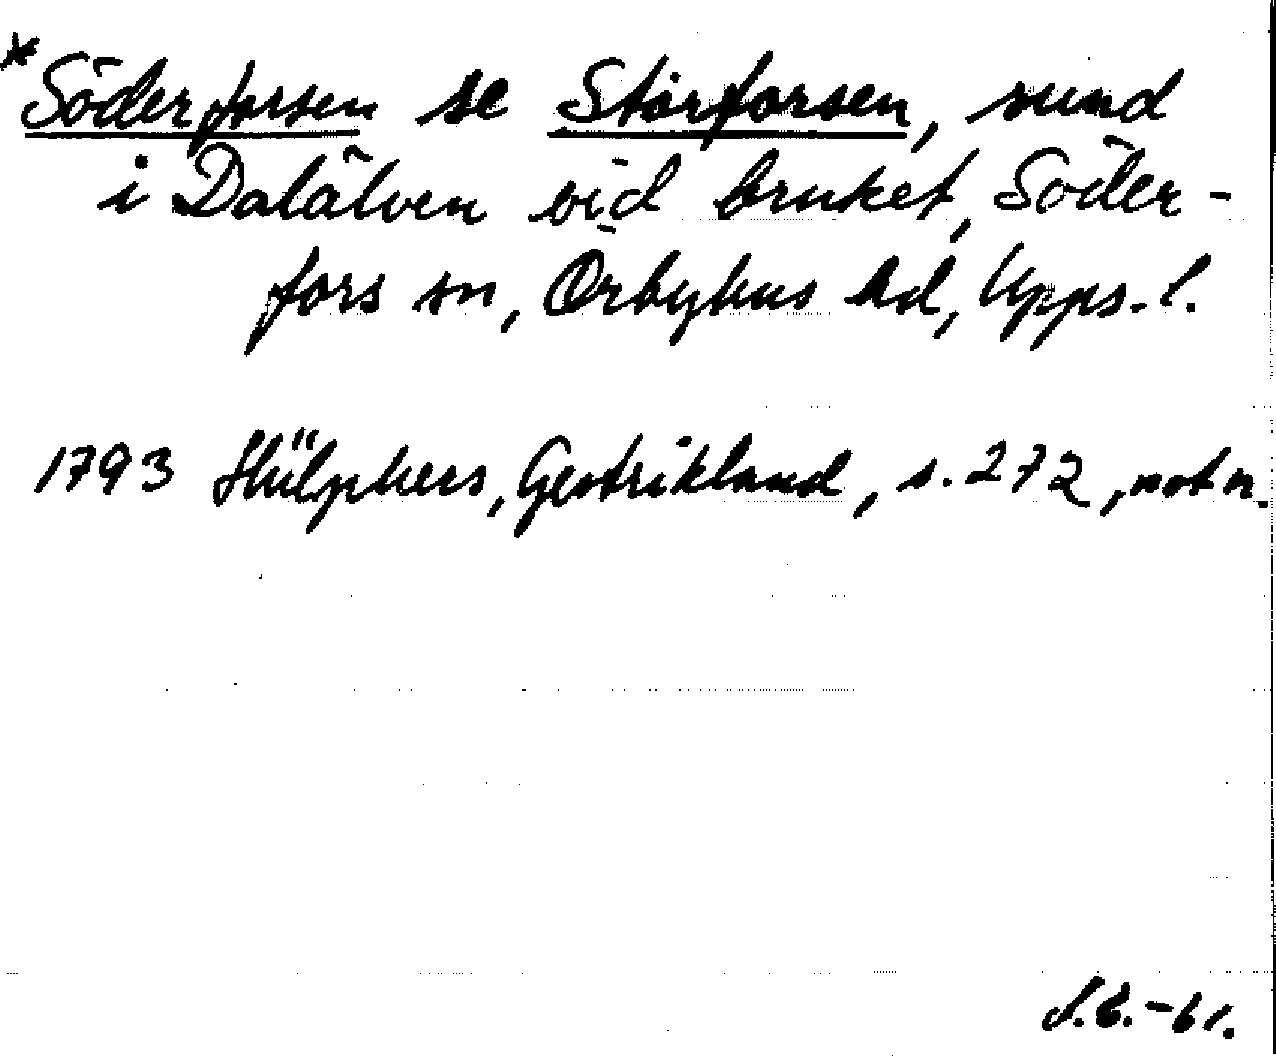 *Söderforsen se Storforsen, sund
i Dalälven vid bruket, Söder-
fors sn, Örbyhus hd, Upps. l.
1793 Hülphers, Gestrikland, s. 272, not n.
S.B. -61.